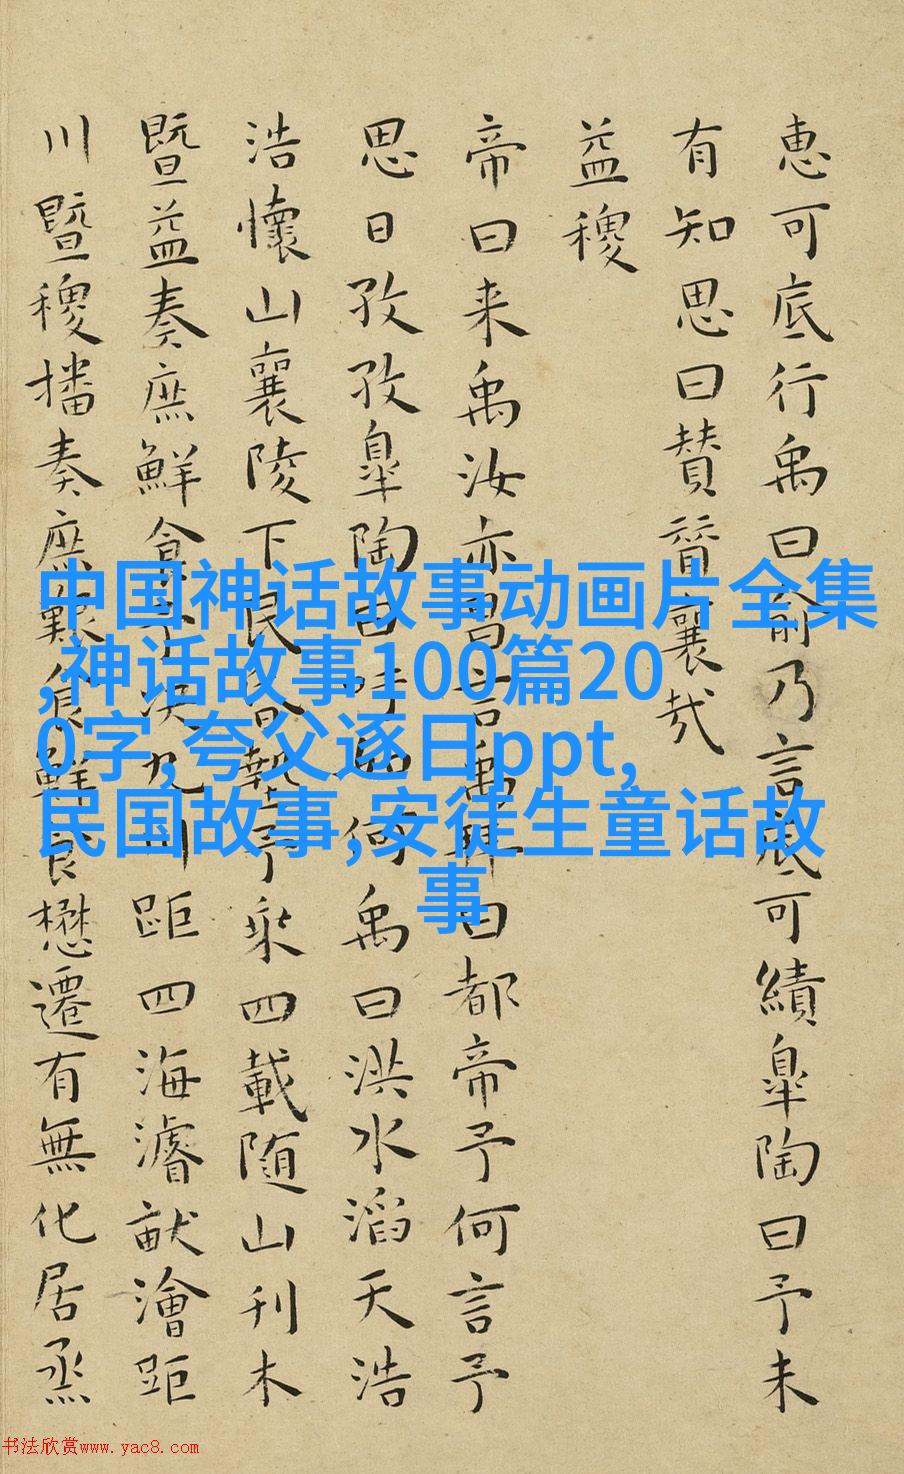 惠可底行禹曰俞乃言底可績皐陶曰予未
有知思曰賛賛襄哉
益稷
帝曰来禹汝亦昌言禹拜曰都帝予何言予
思日孜孜皐陶曰吁如何禹曰洪水滔天浩
浩懷山襄陵下民昏墊予乘四載随山刊木
暨益奏庶鮮食予決九川距四海濬畎澮距
川暨稷播奏庶艱食鮮食懋遷有無化居烝
中国神话故事动画片全集
,神话故事100篇20
0字,夸父逐日ppt,
民国故事,安徒生童话故
事
书法欣赏www.yac8.com